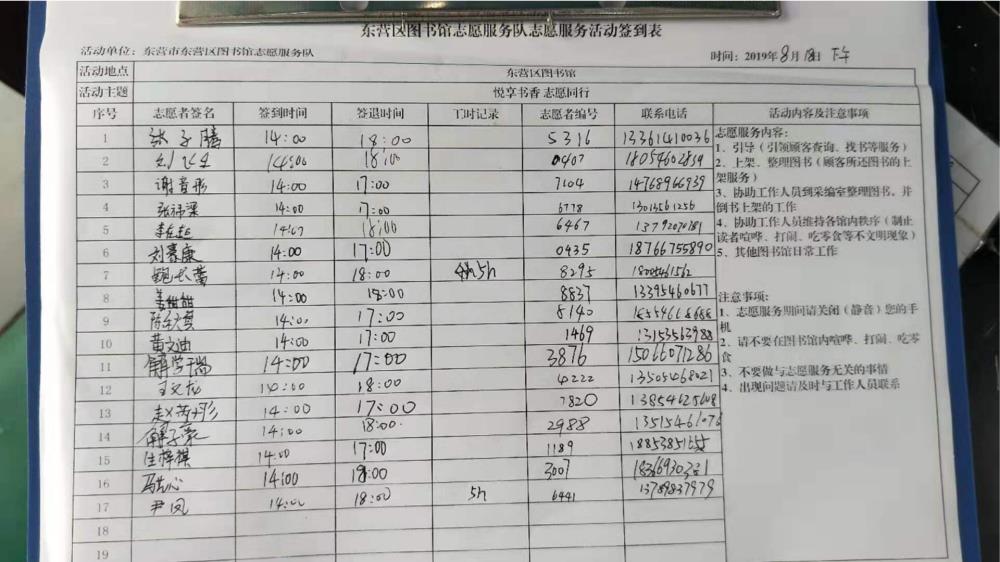 东营区图书馆志愿服务队志愿服务活动签到表
活动单位：东营市东营区图书馆志愿服务队 时间：2019年8月18日 下午
活动地点 东营区图书馆
活动主题 悦享书香 志愿同行
序号 志愿者签名 签到时间 签退时间 工时记录 志愿者编号 联系电话 活动内容及注意事项
1 张子腾 14:00 18:00 5316 13361410036
2 14:00 18:00 0407 18054602839
3 谢音彤 14:00 17:00 7104 14768966939
4 张祎梁 14:00 17:00 6778 13013561256
5 18:00 6467
6 刘赛康 14:00 17:00 0435 18766755890
7 14:00 18:00 5h 8295
8 14:00 18:00 8837 13395460677
9 14:00 17:00 8140
10 黄文迪 14:00 17:00 1469 13153563988
11 14:00 17:00 3876 15066071286
12 王文龙 14:00 18:00 4222 13505468021
13 14:00 17:00 7820 13854625608
14 解子豪 14:00 18:00 2988
15 14:00 17:00 1189
16 14:00 18:00 3007
17 尹凤 14:00 18:00 5h 6441 13789837979
18
19
志愿服务内容：
1、引导（引领顾客查询、找书等服务）
2、上架、整理图书（顾客所还图书的上
架服务）
3、协助工作人员到采编室整理图书，并
倒书上架的工作
4、协助工作人员维持各馆内秩序（制止
读者喧哗、打闹、吃零食等不文明现象）
5、其他图书馆日常工作
注意事项：
1、志愿服务期间请关闭（静音）您的手
机
2、请不要在图书馆内喧哗、打闹、吃零
食
3、不要做与志愿服务无关的事情
4、出现问题请及时与工作人员联系